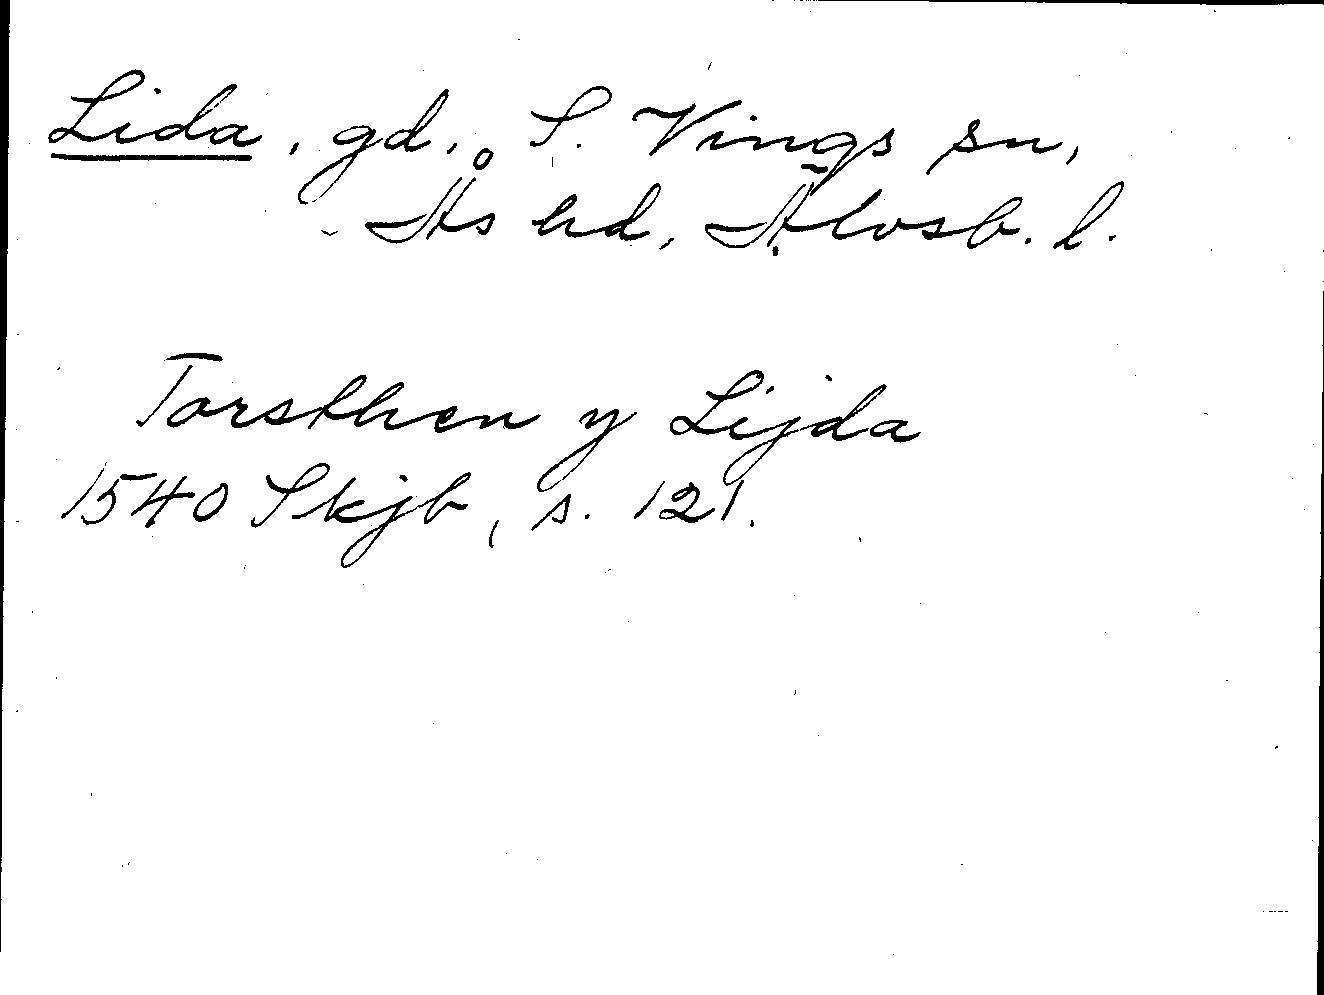 Lida, gd., S. Vings sn,
Ås hd, Älvsb. l.
Torsthen y Lijda
1540 Skjb, s. 121.